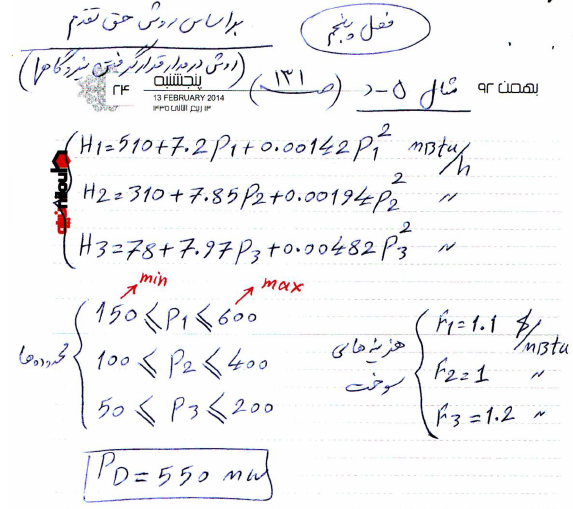 فصل پنجم
براساس روش حق تقدم
(روش در مدار قرار گرفتن نیروگاهها)
بهمن ۹۲
مثال ۵-د
(صـ ۱۳۱)
پنجشنبه
۲۴
13 FEBRUARY 2014
۱۳ ربیع الثانی ۱۴۳۵
H1=510+7.2P1+0.00142P1² MBtu/h
H2=310+7.85P2+0.00194P2² "
H3=78+7.97P3+0.00482P3² "
min
max
محدوده‌ها
150 ⩽ P1 ⩽ 600
100 ⩽ P2 ⩽ 400
50 ⩽ P3 ⩽ 200
هزینه های سوخت
F1=1.1 $/MBtu
F2=1 "
F3=1.2 "
PD=550 MW